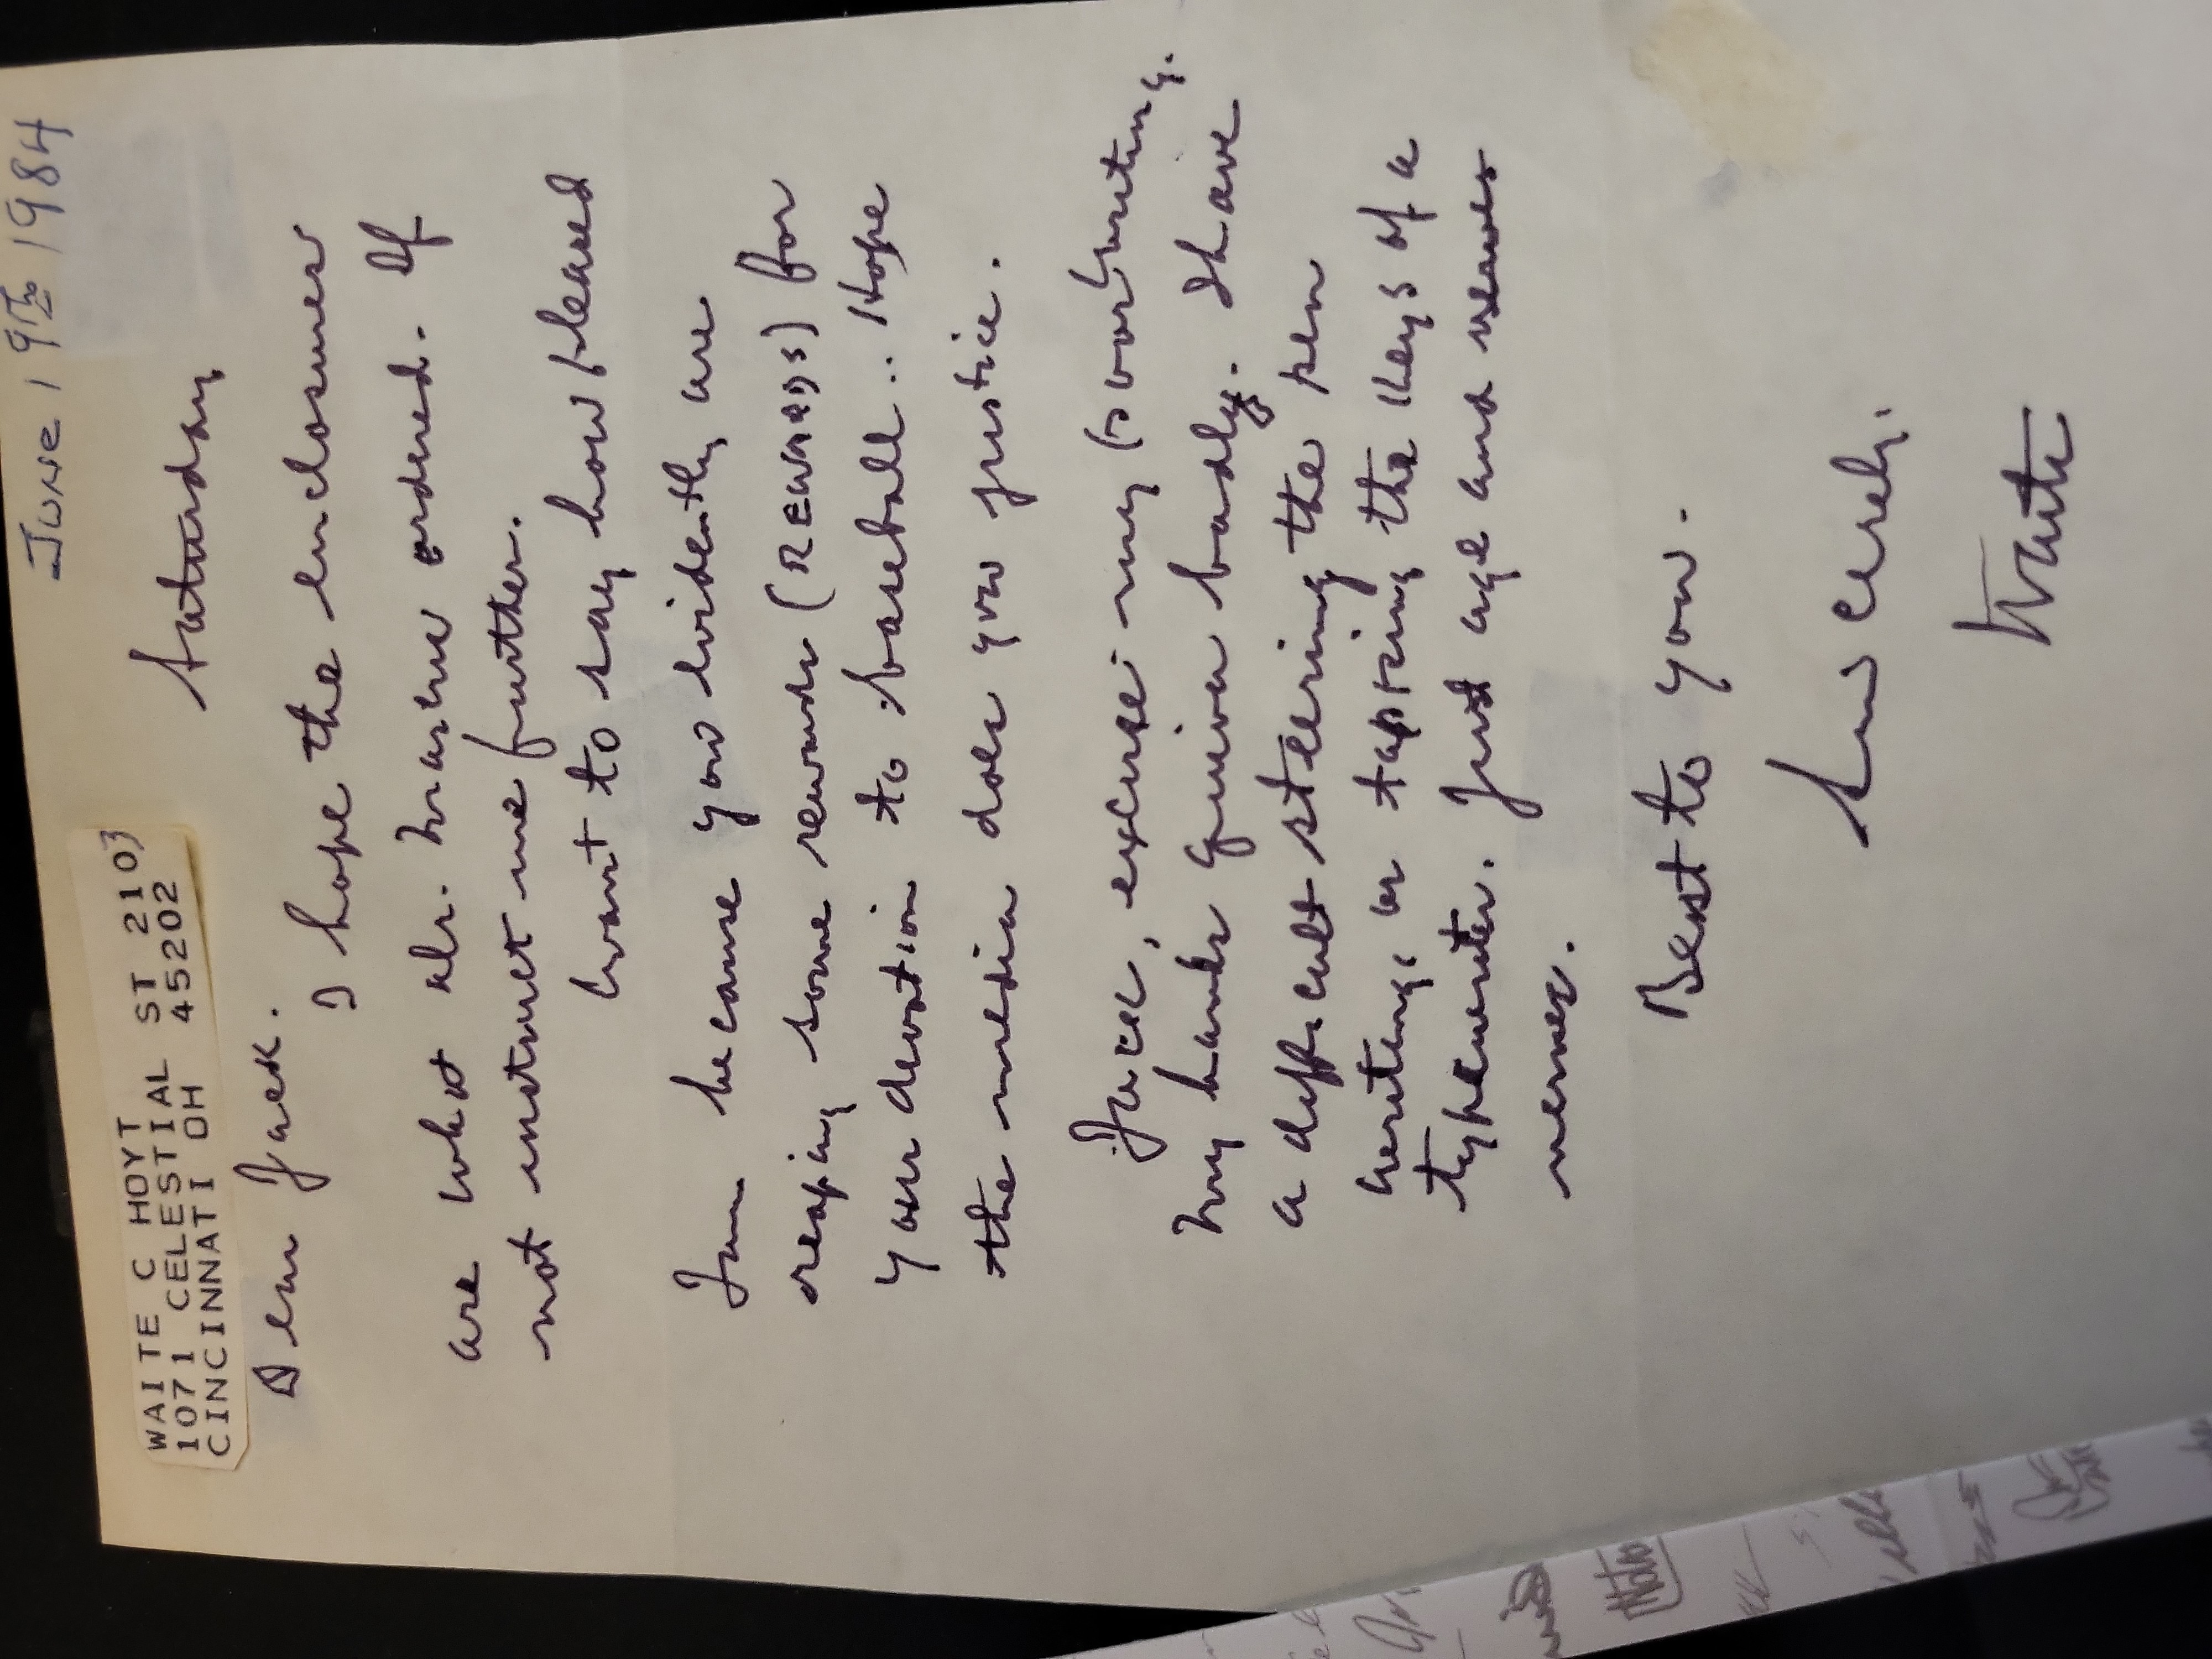 June 19th 1984
WAITE C HOYT
1071 CELESTIAL ST 2103
CINCINNATI OH 45202
Saturday
Dear Jack.
I hope the enclosures
are what dr. ordered. If
not instruct me further.
Want to say how pleased
I am because you evidently are
reaping some rewards (REWARDS) for
your devotion to baseball.. Hope
the media does you justice.
Jack, excuse my poor writing.
My hands quiver badly. I have
a difficult steering the pen
writing or tapping the keys of a
typewriter. Just age and
nerves.
Best to you.
Sincerely.
Waite